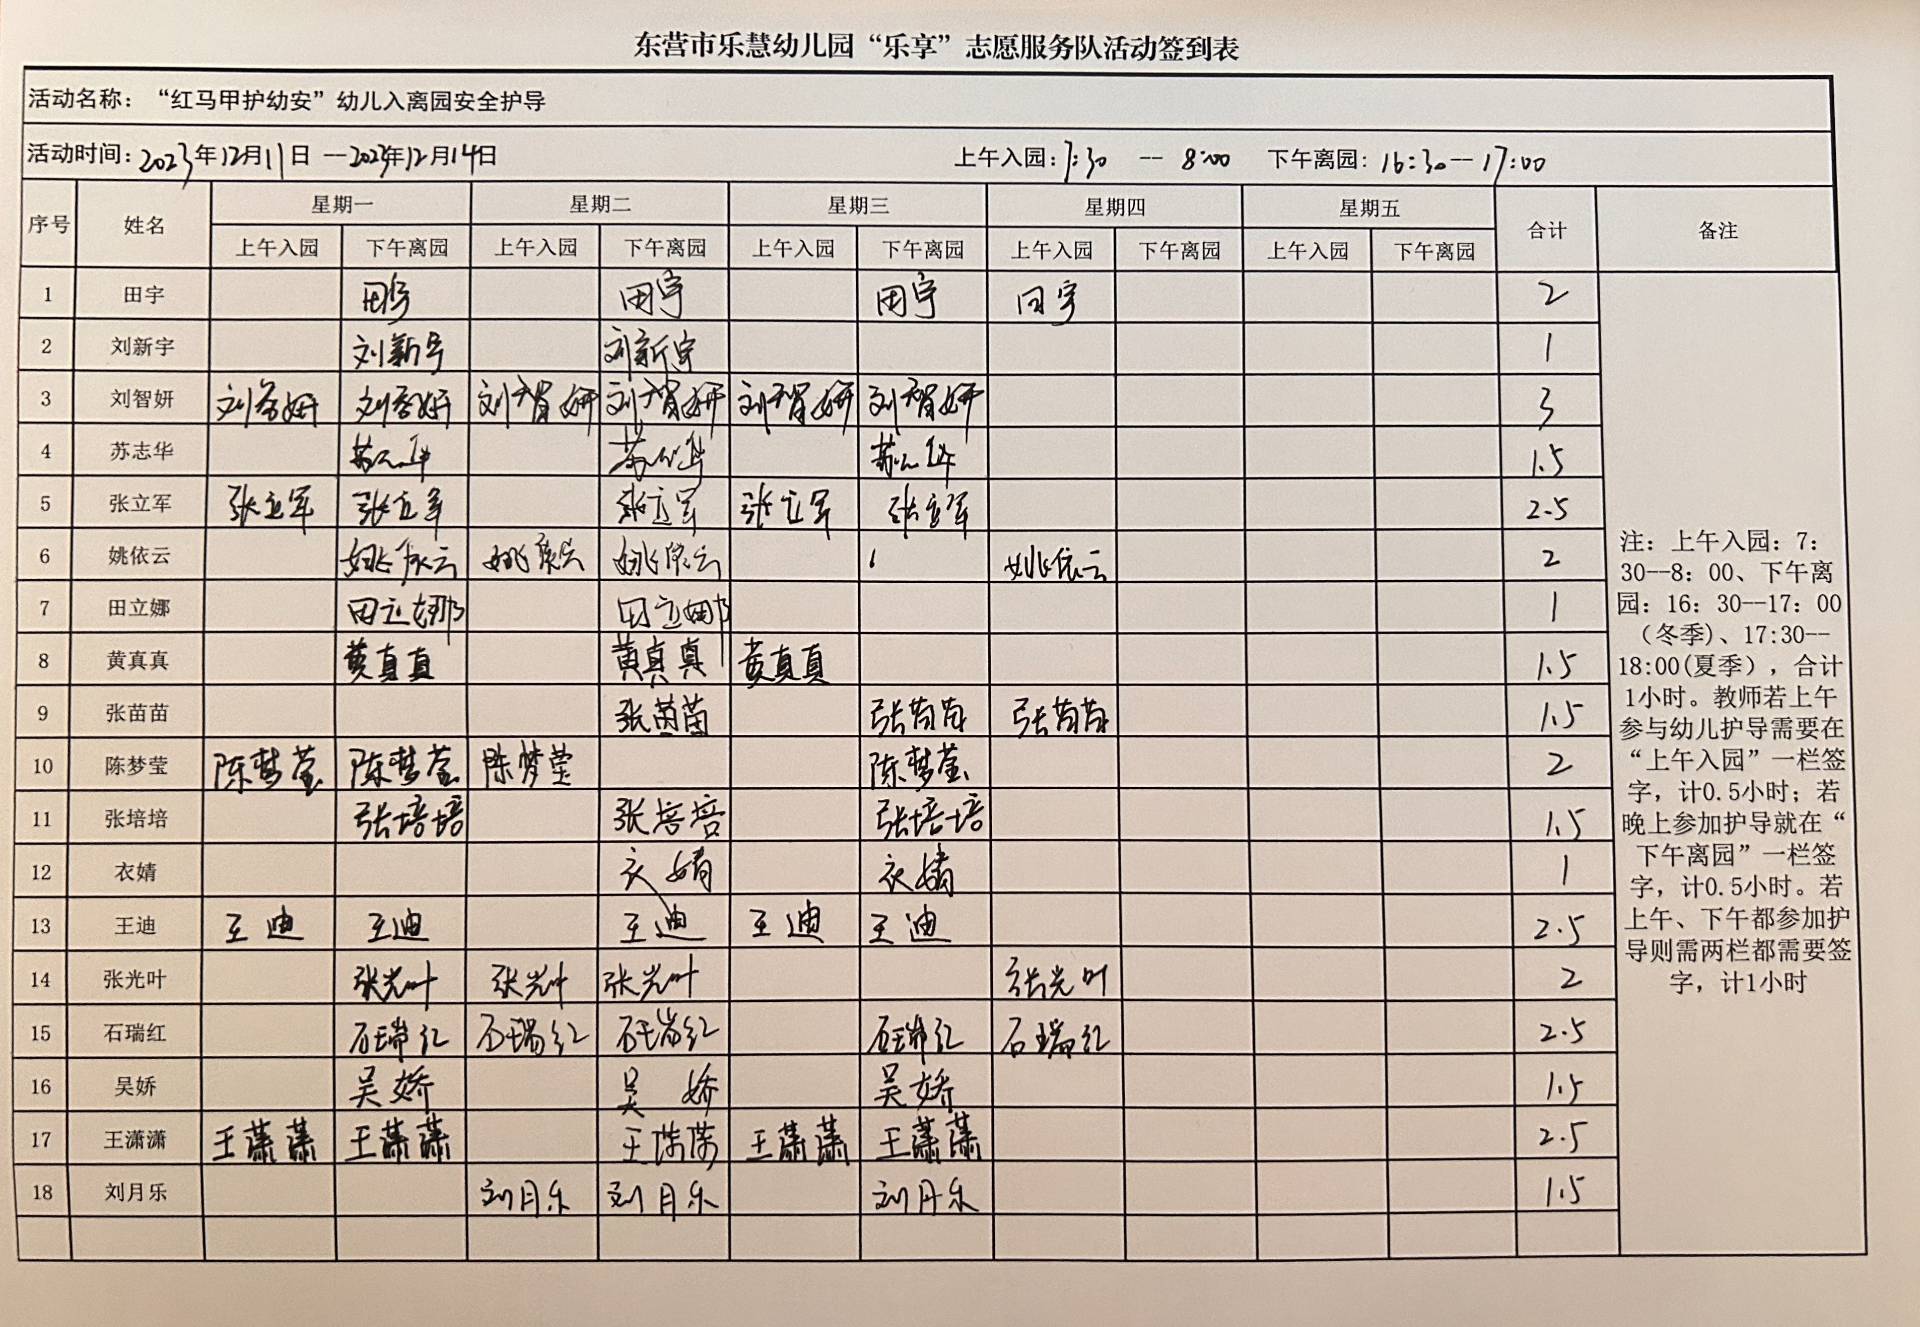 东营市乐慧幼儿园“乐享”志愿服务队活动签到表
活动名称：“红马甲护幼安”幼儿入离园安全护导
活动时间：2023年12月11日--2023年12月14日 上午入园：7:30 -- 8:00 下午离园：16:30--17:00
序号 姓名 星期一 星期二 星期三 星期四 星期五 合计 备注
上午入园 下午离园 上午入园 下午离园 上午入园 下午离园 上午入园 下午离园 上午入园 下午离园
1 田宇 田宇 田宇 田宇 田宇 2
2 刘新宇 刘新宇 刘新宇 1
3 刘智妍 刘智妍 刘智妍 刘智妍 刘智妍 刘智妍 刘智妍 3
4 苏志华 苏志华 苏志华 苏志华 1.5
5 张立军 张立军 张立军 张立军 张立军 张立军 2.5
6 姚依云 姚依云 姚依云 姚依云 姚依云 2
7 田立娜 田立娜 田立娜 1
8 黄真真 黄真真 黄真真 黄真真 1.5
9 张苗苗 张苗苗 张苗苗 张苗苗 1.5
10 陈梦莹 陈梦莹 陈梦莹 陈梦莹 陈梦莹 2
11 张培培 张培培 张培培 张培培 1.5
12 衣婧 衣婧 衣婧 1
13 王迪 王迪 王迪 王迪 王迪 王迪 2.5
14 张光叶 张光叶 张光叶 张光叶 张光叶 2
15 石瑞红 石瑞红 石瑞红 石瑞红 石瑞红 石瑞红 2.5
16 吴娇 吴娇 吴娇 吴娇 1.5
17 王潇潇 王潇潇 王潇潇 王潇潇 王潇潇 王潇潇 2.5
18 刘月乐 刘月乐 刘月乐 刘月乐 1.5
注：上午入园：7：
30--8：00、下午离
园：16：30--17：00
（冬季）、17:30--
18:00(夏季），合计
1小时。教师若上午
参与幼儿护导需要在
“上午入园”一栏签
字，计0.5小时；若
晚上参加护导就在“
下午离园”一栏签
字，计0.5小时。若
上午、下午都参加护
导则需两栏都需要签
字，计1小时